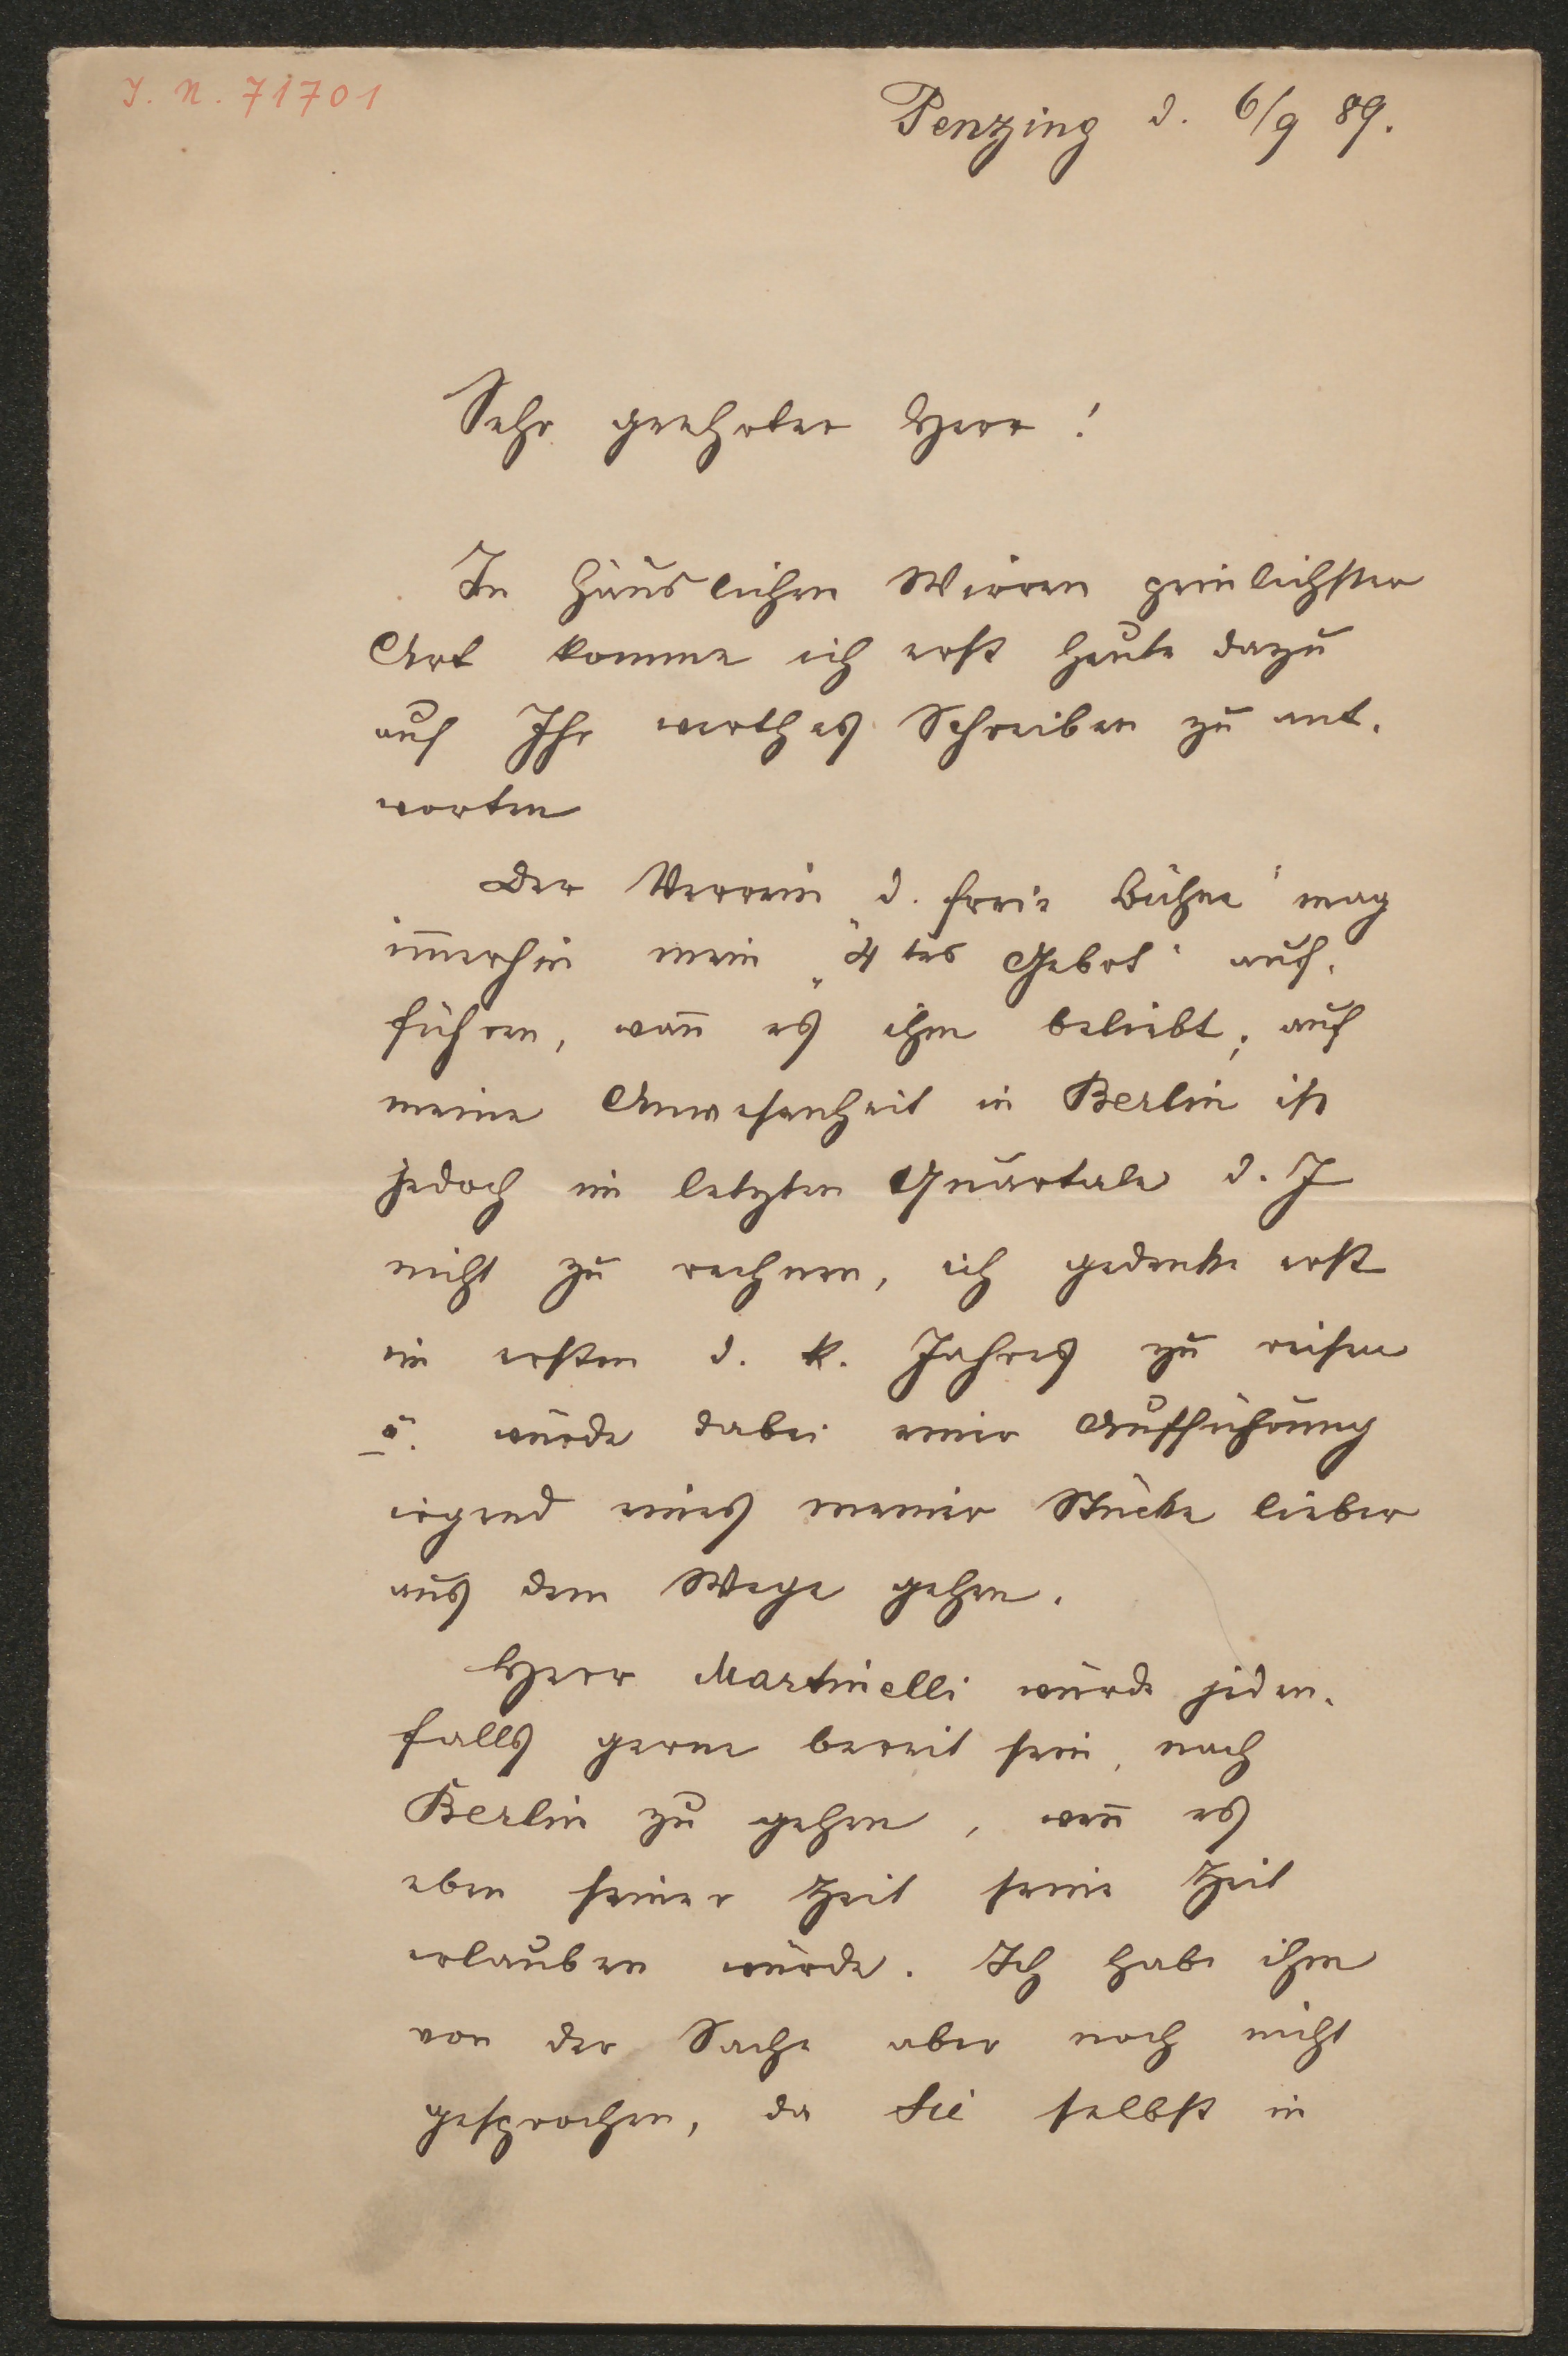 I. N. 71701
Penzing d. 6/9 89.
Sehr geehrter Herr!
In häuslichen Wirren peinlichster
Art komme ich erst heute dazu
auf Ihr werthes Schreiben zu ant-
worten
Der Verein „d. freie Bühne“ mag
im̅erhin mein „4tes Gebot“ auf-
führen, wan̅ es ihm beliebt; auf
meine Anwesenheit in Berlin ist
jedoch im letzten Quartale d. J
nicht zu rechnen, ich gedenke erst
im ersten d. k. Jahres zu reisen
u. würde dabei einer Aufführung
irgend eines meiner Stücke lieber
aus dem Wege gehen.
Herr Martinelli würde jeden-
falls gerne bereit sein, nach
Berlin zu gehen, wen̅ es
eben seiner Zeit seine Zeit
erlauben würde. Ich habe ihm
von der Sache aber noch nicht
gesprochen, da Sie selbst in